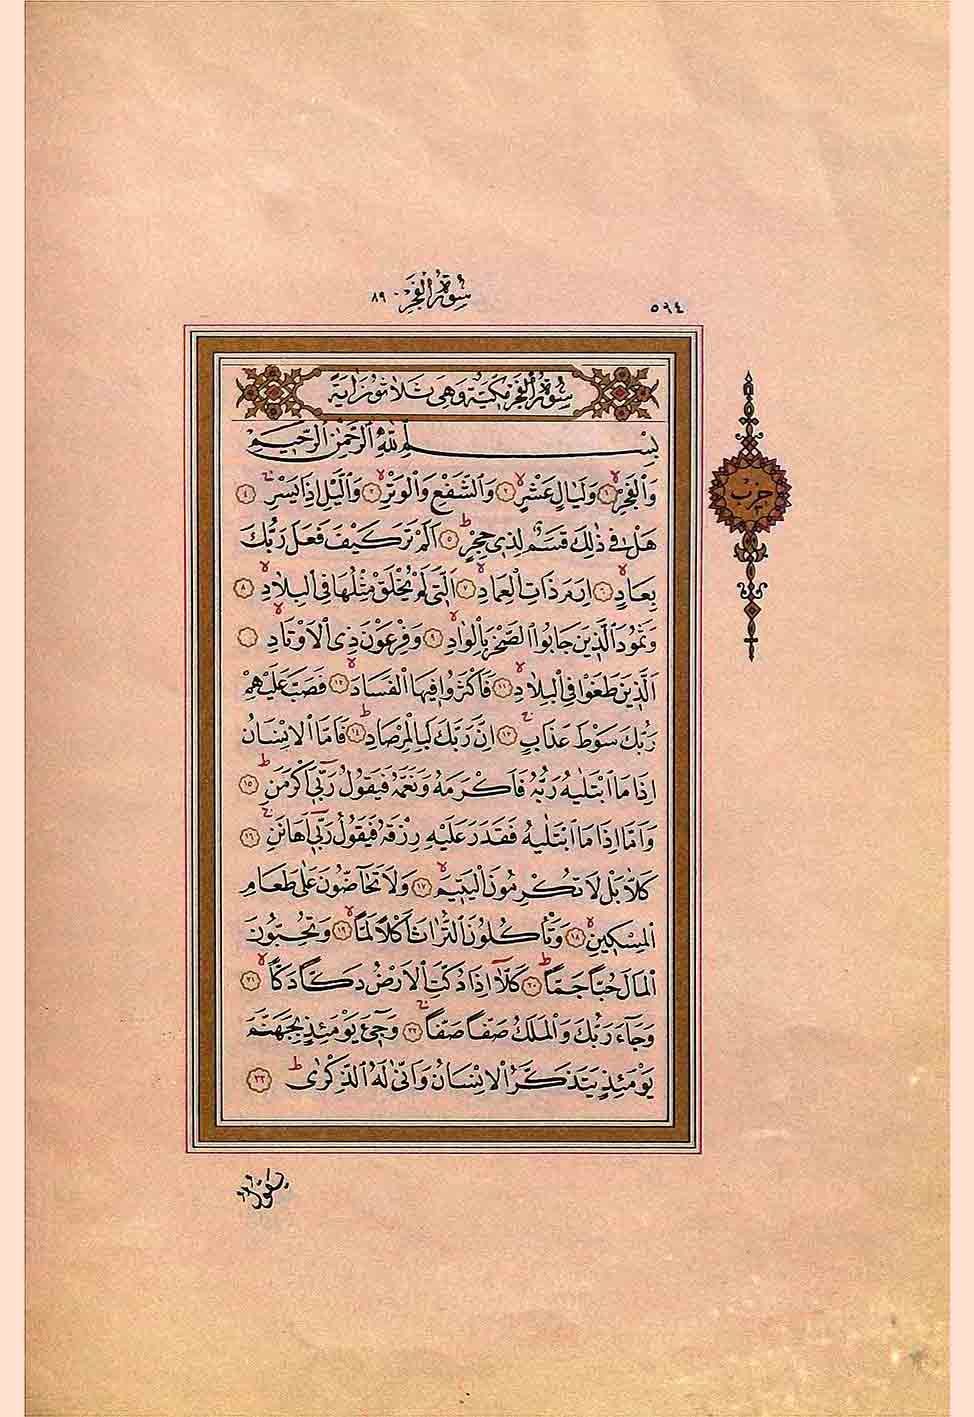 ٥٩٤
سُورَةُ الْفَجْرِ - ٨٩
سُورَةُ الْفَجْرِ مَكِّيَّةٌ وَهِيَ ثَلَاثُونَ اٰيَةً
بِسْمِ اللّٰهِ الرَّحْمٰنِ الرَّحِيمِ
وَالْفَجْرِ ۙ ١ وَلَيَالٍ عَشْرٍ ۙ ٢ وَالشَّفْعِ وَالْوَتْرِ ۙ ٣ وَالَّيْلِ اِذَا يَسْرِ ۚ ٤
هَلْ فِي ذٰلِكَ قَسَمٌ لِذِي حِجْرٍ ۜ ٥ اَلَمْ تَرَ كَيْفَ فَعَلَ رَبُّكَ
بِعَادٍ ۙ ٦ اِرَمَ ذَاتِ الْعِمَادِ ۙ ٧ اَلَّتِي لَمْ يُخْلَقْ مِثْلُهَا فِي الْبِلَادِ ۙ ٨
وَثَمُودَ الَّذِينَ جَابُوا الصَّخْرَ بِالْوَادِ ۙ ٩ وَفِرْعَوْنَ ذِي الْاَوْتَادِ ۙ ١٠
اَلَّذِينَ طَغَوْا فِي الْبِلَادِ ۙ ١١ فَاَكْثَرُوا فِيهَا الْفَسَادَ ۙ ١٢ فَصَبَّ عَلَيْهِمْ
رَبُّكَ سَوْطَ عَذَابٍ ۚ ١٣ اِنَّ رَبَّكَ لَبِالْمِرْصَادِ ۜ ١٤ فَاَمَّا الْاِنْسَانُ
اِذَا مَا ابْتَلٰيهُ رَبُّهُ فَاَكْرَمَهُ وَنَعَّمَهُ فَيَقُولُ رَبِّي اَكْرَمَنِ ۜ ١٥
وَاَمَّا اِذَا مَا ابْتَلٰيهُ فَقَدَرَ عَلَيْهِ رِزْقَهُ فَيَقُولُ رَبِّي اَهَانَنِ ۚ ١٦
كَلَّا بَلْ لَا تُكْرِمُونَ الْيَتِيمَ ۙ ١٧ وَلَا تَحَاضُّونَ عَلٰى طَعَامِ
الْمِسْكِينِ ۙ ١٨ وَتَأْكُلُونَ التُّرَاثَ اَكْلًا لَمًّا ۙ ١٩ وَتُحِبُّونَ
الْمَالَ حُبًّا جَمًّا ۜ ٢٠ كَلَّا اِذَا دُكَّتِ الْاَرْضُ دَكًّا دَكًّا ۙ ٢١
وَجَاءَ رَبُّكَ وَالْمَلَكُ صَفًّا صَفًّا ۚ ٢٢ وَجِيءَ يَوْمَئِذٍ بِجَهَنَّمَ
يَوْمَئِذٍ يَتَذَكَّرُ الْاِنْسَانُ وَاَنّٰى لَهُ الذِّكْرٰى ۜ ٢٣
حزب
يَقُولُ